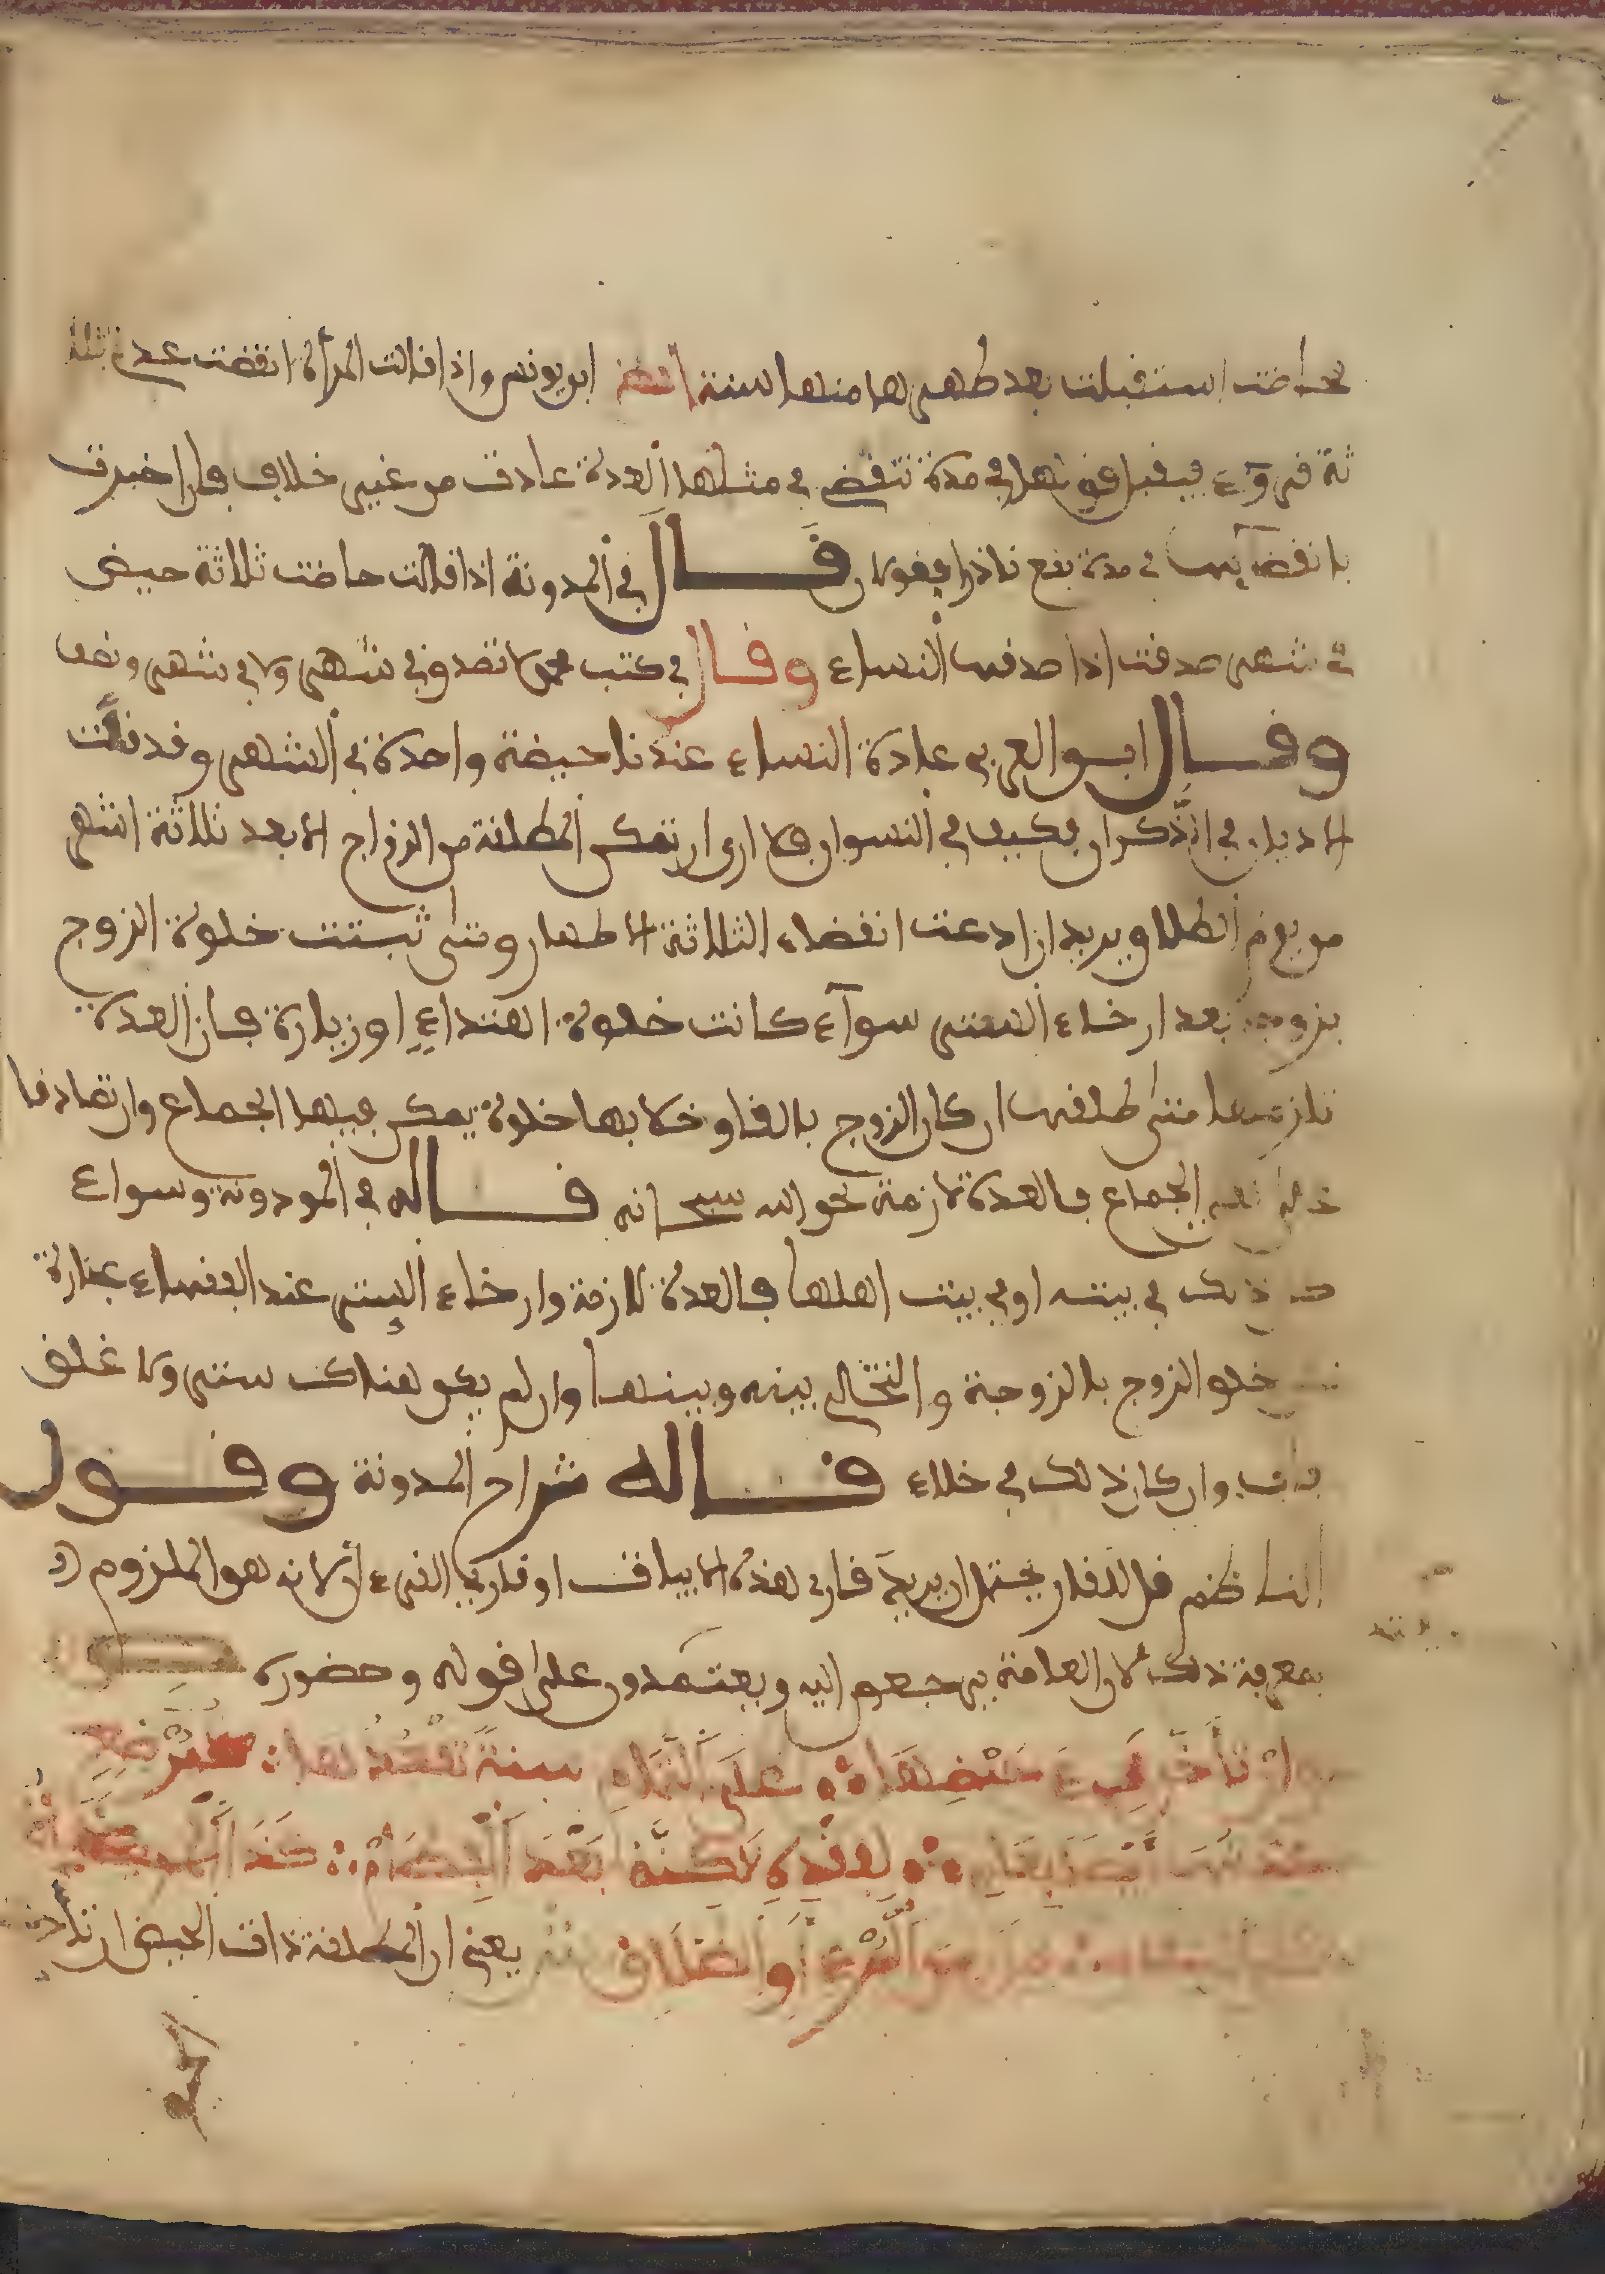 حاضت استقبلت بعد طهرها منها سنة انتهى ابن يونس واذا قالت المرأة انقضت عدتي بثلا
ثة قروء فيقبل قولها في مدة تنقضي في مثلها العدة عادة من غير خلاف فان اخبرت
بانقضائها في مدة يقع نادرا فقولان قال في المدونة اذا قالت حاضت ثلاثة حيض
في شهر صدقت اذا صدقها النساء وقال في كتب محمد لا تصدق في شهر ولا في شهر ونصف
وقال ابو العربي عادة النساء عندنا حيضة واحدة في الشهر وقد قلت
الاديان في الذكران فكيف في النسوان فلا ارى ان تمكن المطلقة من الزواج الا بعد ثلاثة اشهر
من يوم الطلاق يريد ان ادعت انقضاء الثلاثة الاطهار ومتى ثبتت خلوة الزوج
بزوجه بعد ارخاء الستر سواء كانت خلوة اهتداء او زيارة فان العدة
تلزمها متى طلقها ان كان الزوج بالغا وخلا بها خلوة يمكن فيها الجماع وان تصادقا
على نفي الجماع فالعدة لازمة لحق الله سبحانه قاله في المودونة وسواء
كان ذلك في بيته او في بيت اهلها فالعدة لازمة وارخاء الستر عند الفقهاء عبارة
عن خلو الزوج بالزوجة والتخالي بينه وبينها وان لم يكن هناك ستر ولا غلق
باب وان كان ذلك في خلاء قاله شراح المدونة وقول
الناظم قل للقار يحتمل ان يريد قارئ هذه الابيات او قارئ القرءان لانه هو الملزوم
بمعرفة ذلك لان العامة يرجعون اليه ويعتمدون على قوله وحضوره
وان تأخر حيضها على التمام سنة تعتدها
لعدة لكنه بعد
القرء او الطلاق ش يعني ان المطلقة ذات الحيض ان تأخر